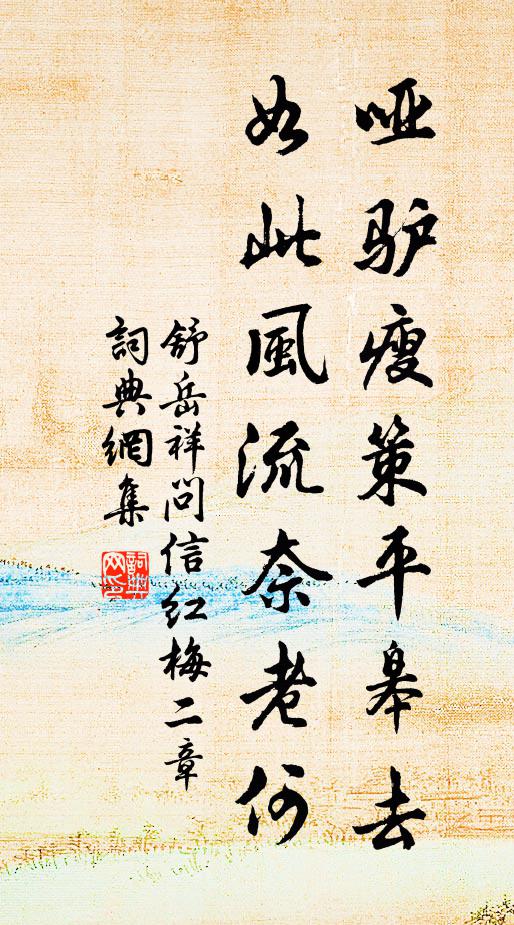 哑驴瘦策平皋去
如此風流奈老何
舒岳祥问信红梅二章
詞典網集